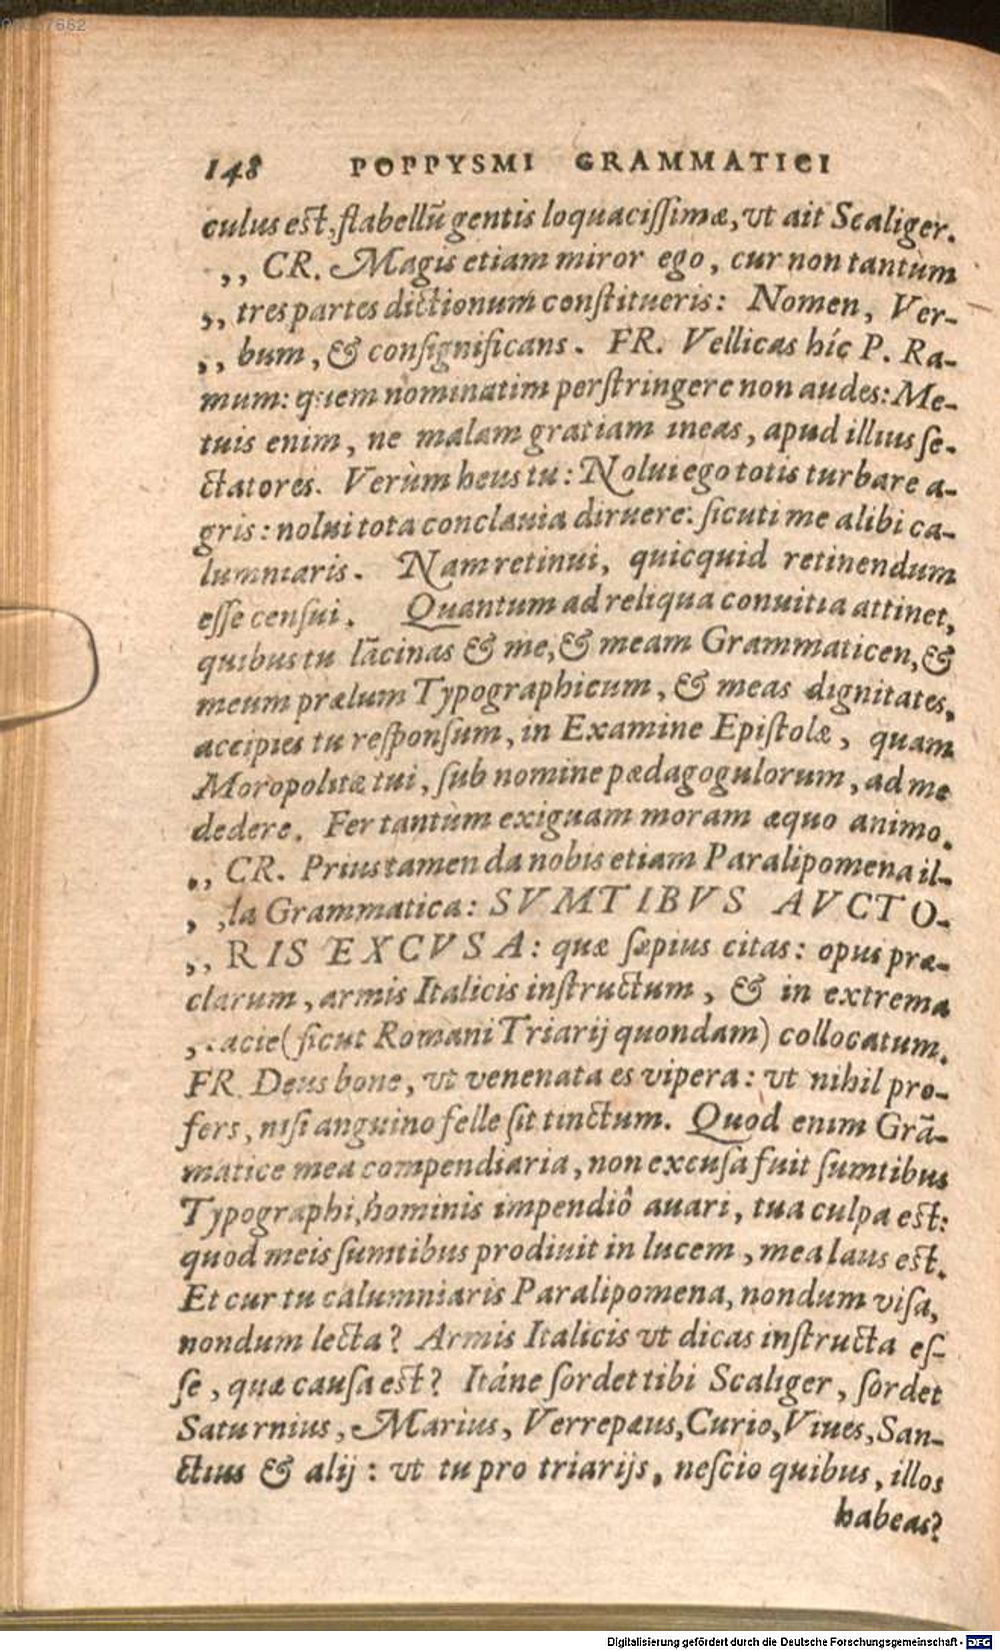 148 POPPYSMI GRAMMATICI
culus est, flabellũ gentis loquacissimæ, vt ait Scaliger.
,, CR. Magis etiam miror ego, cur non tantùm
,, tres partes dictionum constitueris: Nomen, Ver-
,, bum, & consignificans. FR. Vellicas híc P. Ra-
mum: quem nominatim perstringere non audes: Me-
tuis enim, ne malam gratiam ineas, apud illius se-
ctatores. Verùm heus tu: Nolui ego totis turbare a-
gris: nolui tota conclauia diruere: sicuti me alibi ca-
lumniaris. Nam retinui, quicquid retinendum
esse censui. Quantum ad reliqua conuitia attinet,
quibus tu lãcinas & me, & meam Grammaticen, &
meum prælum Typographicum, & meas dignitates,
accipies tu responsum, in Examine Epistolæ, quam
Moropolitæ tui, sub nomine pædagogulorum, ad me
dedere. Fer tantùm exiguam moram æquo animo.
,, CR. Prius tamen da nobis etiam Paralipomena il-
,, la Grammatica: SVMTIBVS AVCTO-
,, RIS EXCVSA: quæ sæpius citas: opus præ-
clarum, armis Italicis instructum, & in extrema
,, acie (sicut Romani Triarij quondam) collocatum.
FR. Deus bone, vt venenata es vipera: vt nihil pro-
fers, nisi anguino felle sit tinctum. Quod enim Grã-
matice mea compendiaria, non excusa fuit sumtibus
Typographi, hominis impendiô auari, tua culpa est:
quod meis sumtibus prodiuit in lucem, mea laus est.
Et cur tu calumniaris Paralipomena, nondum visa,
nondum lecta? Armis Italicis vt dicas instructa es-
se, quæ causa est? Itáne sordet tibi Scaliger, sordet
Saturnius, Marius, Verrepæus, Curio, Viues, San-
ctius & alij: vt tu pro triarijs, nescio quibus, illos
habeas?
Digitalisierung gefördert durch die Deutsche Forschungsgemeinschaft - DFG